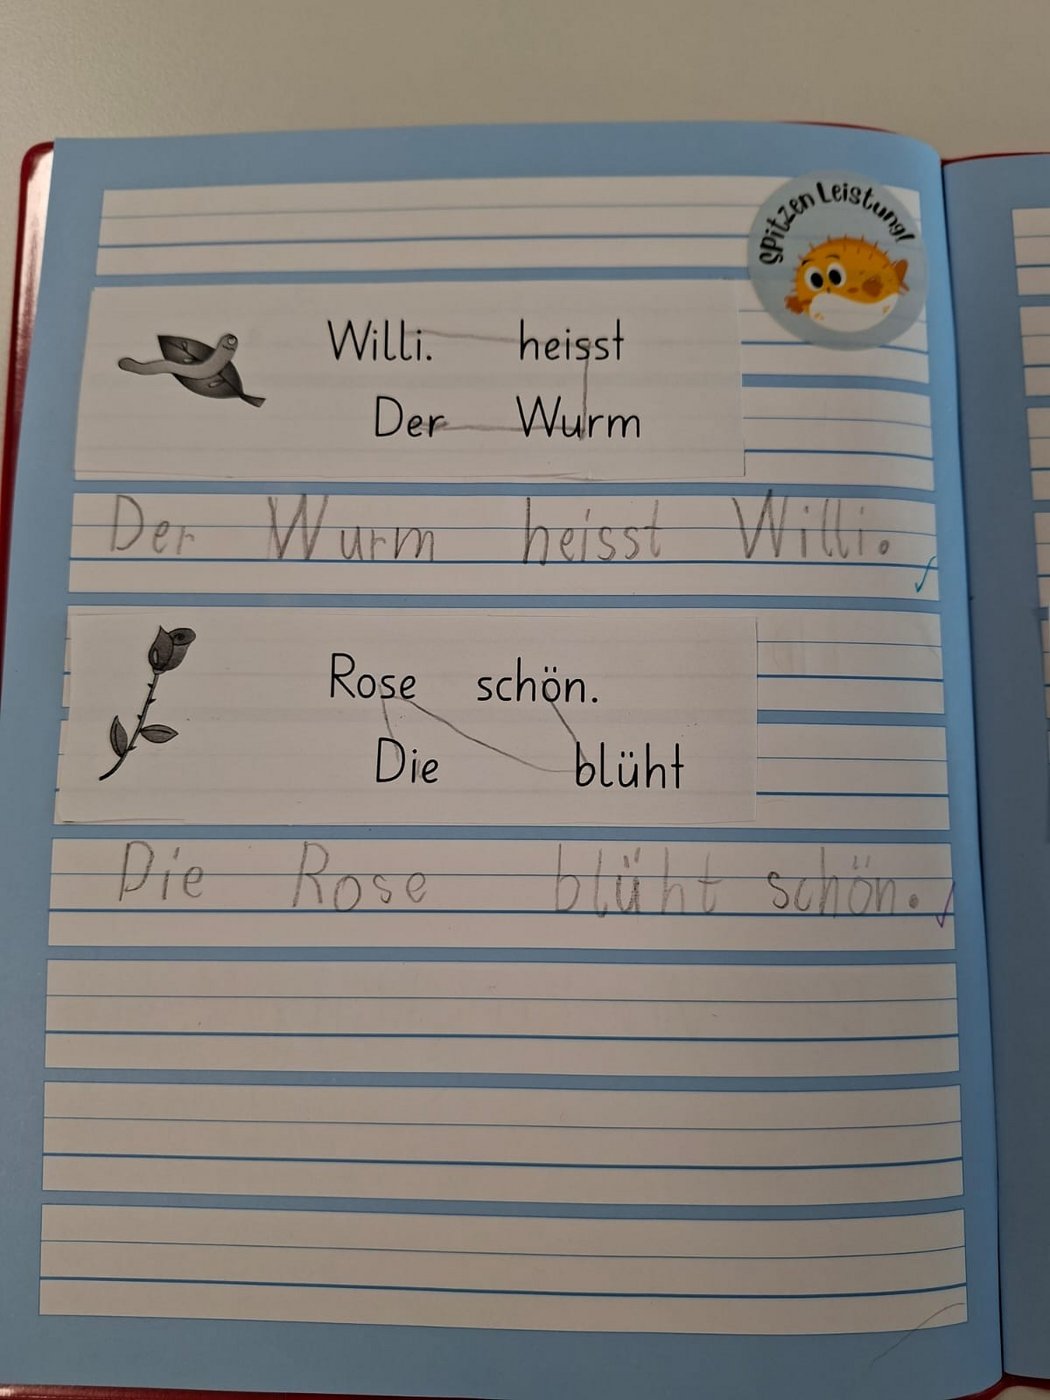 Spitzen Leistung!
Willi. heisst
Der Wurm
Der Wurm heisst Willi.
Rose schön.
Die blüht
Die Rose blüht schön.